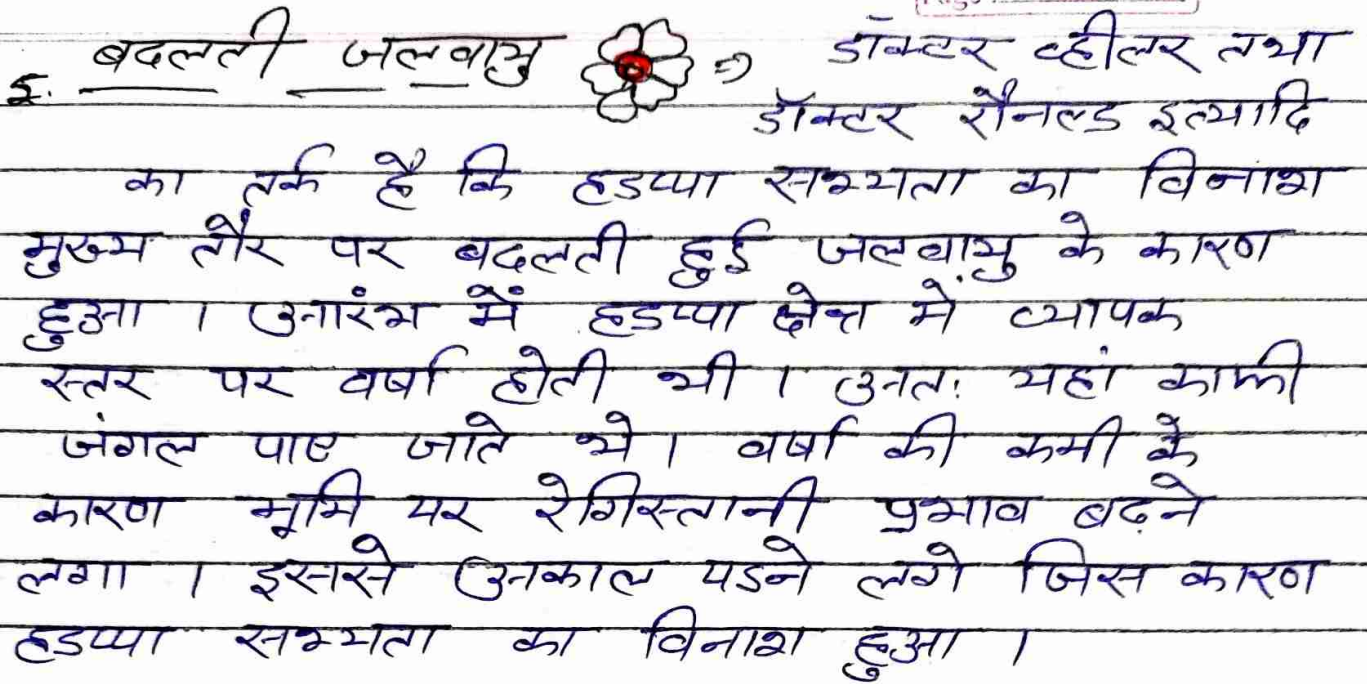 5. बदलती जलवायु => डॉक्टर व्हीलर तथा
डॉक्टर रौनल्ड इत्यादि
का तर्क है कि हडप्पा सभ्यता का विनाश
मुख्य तौर पर बदलती हुई जलवायु के कारण
हुआ । आरंभ में हडप्पा क्षेत्र मे व्यापक
स्तर पर वर्षा होती थी । अतः यहां काफी
जंगल पाए जाते थे । वर्षा की कमी के
कारण भूमि पर रेगिस्तानी प्रभाव बढ़ने
लगा । इससे अकाल पडने लगे जिस कारण
हडप्पा सभ्यता का विनाश हुआ ।